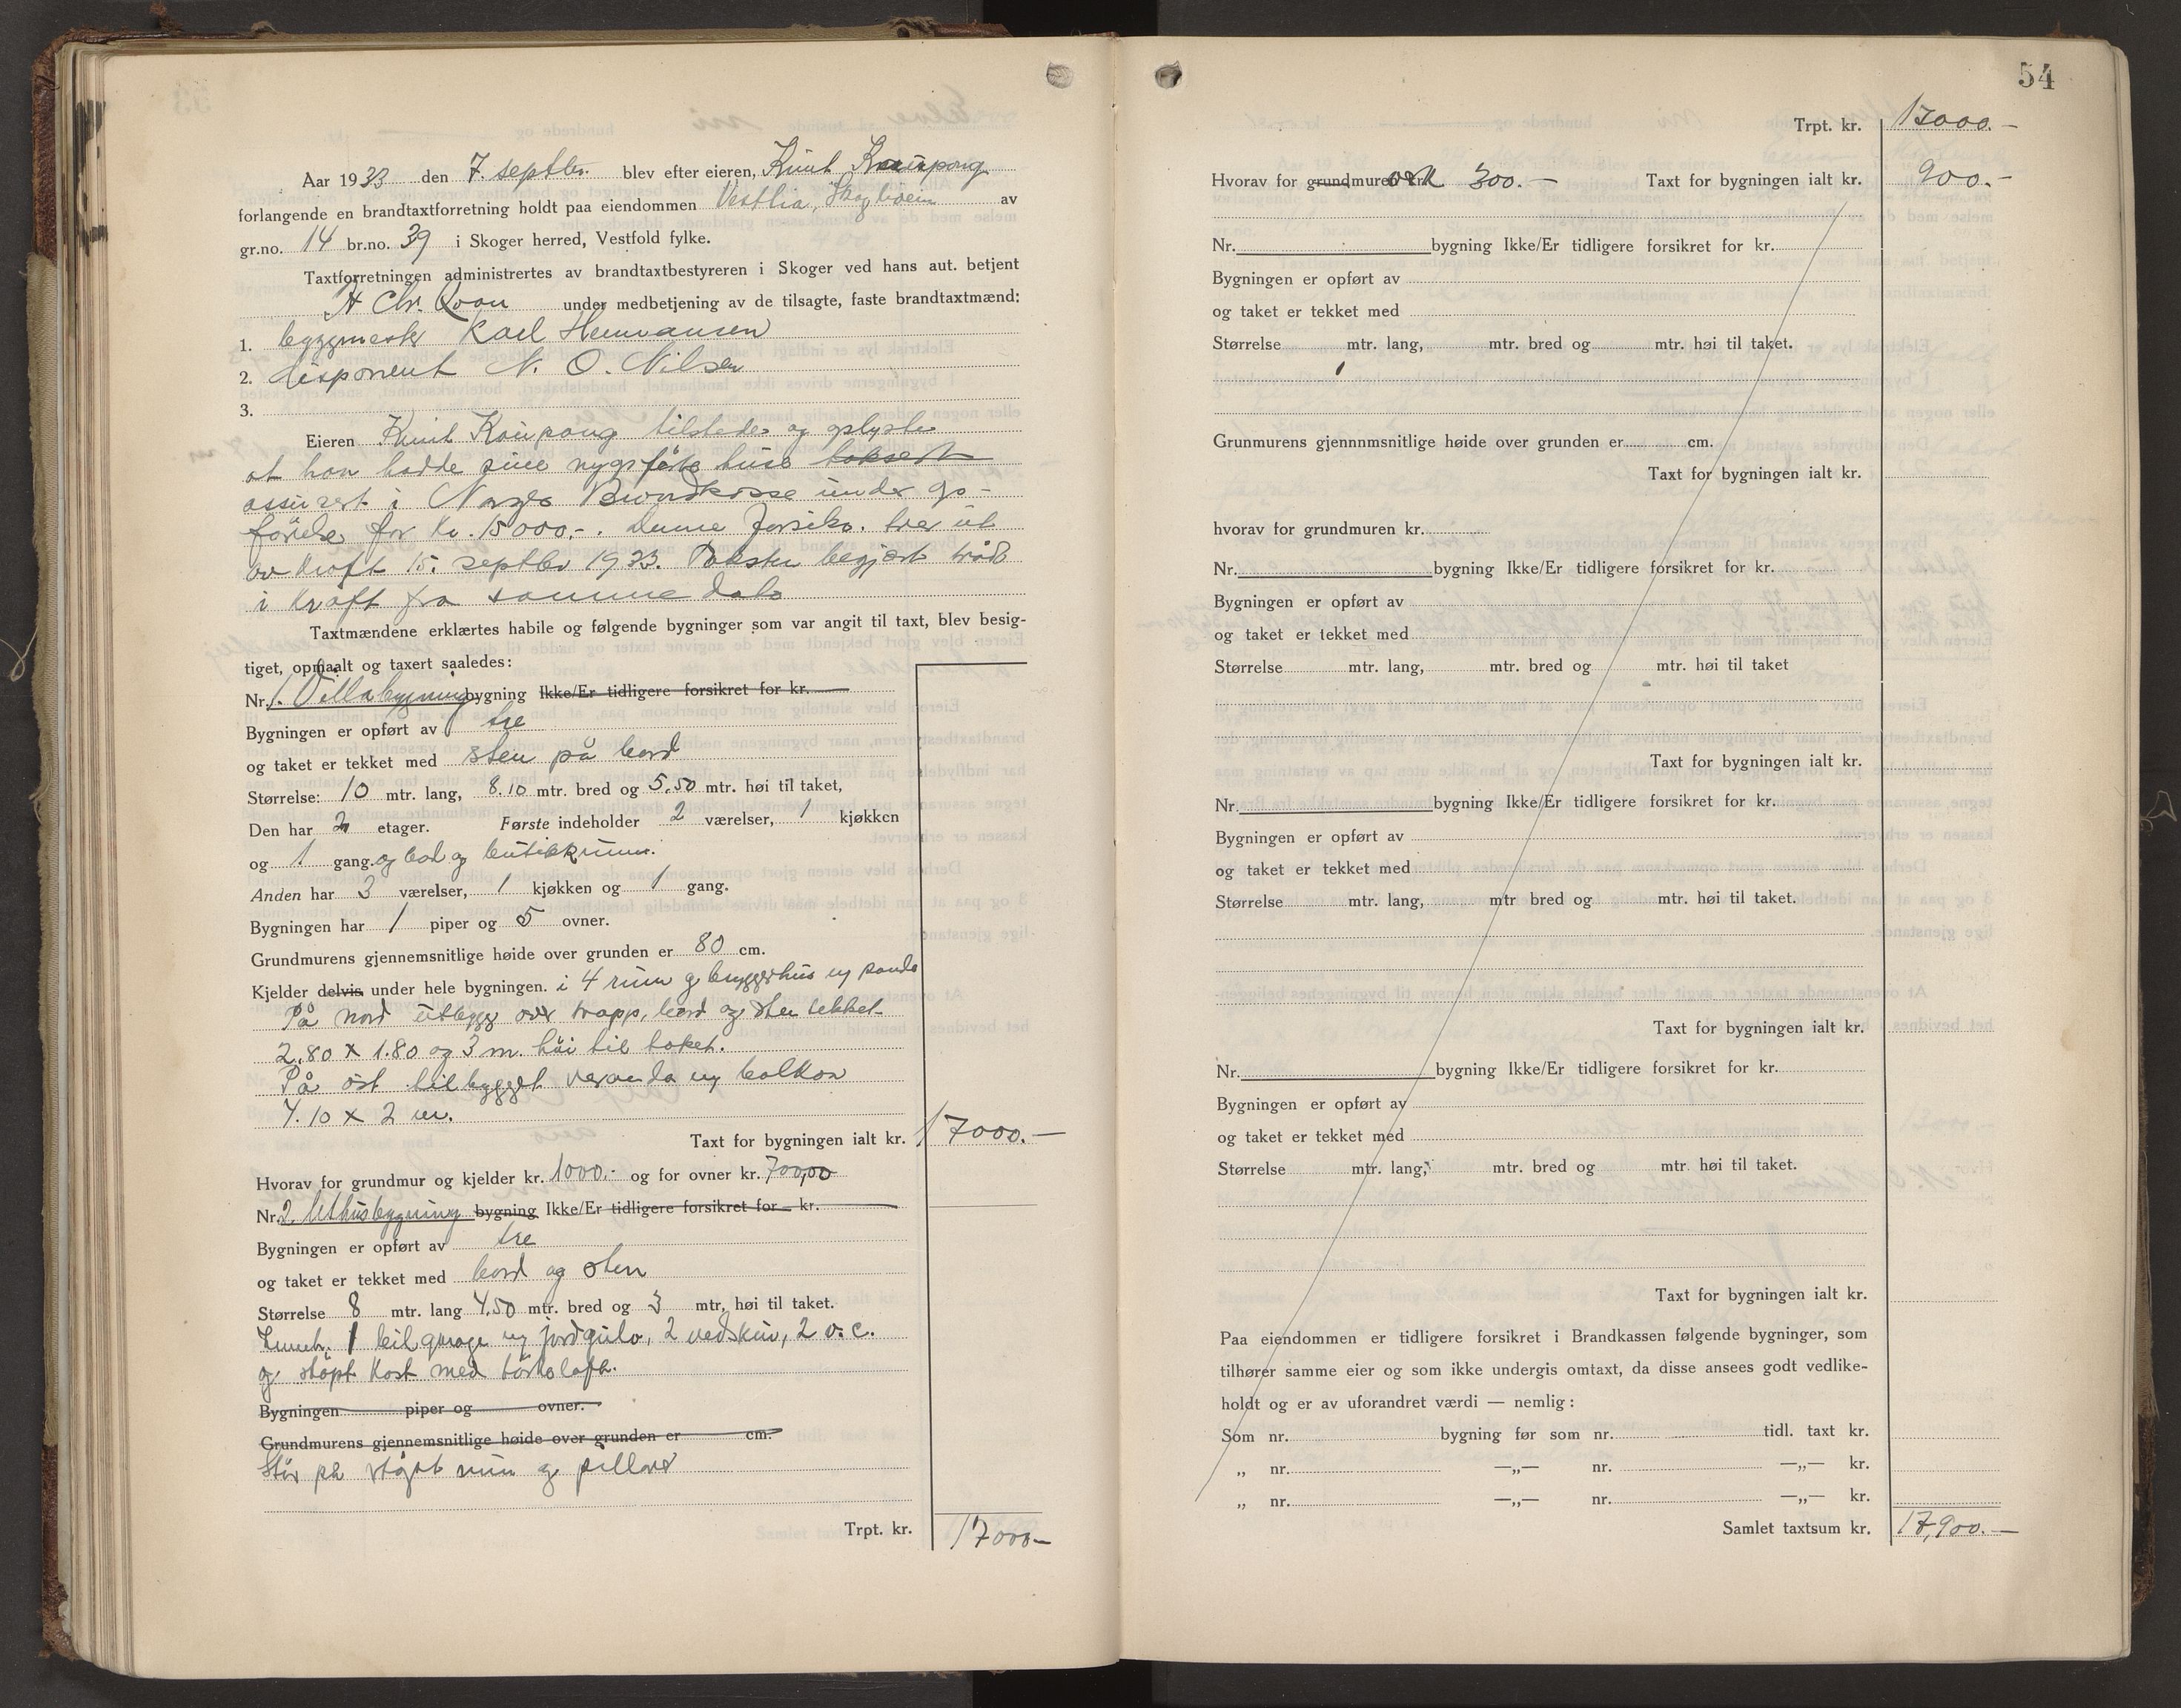 Aar 1933 den 7. septbr. blev efter eieren, Knut Kaupang
forlangende en brandtaxtforretning holdt paa eiendommen Vestlia, Skogveien av
gr.no. 14 br.no. 39 i Skoger herred, Vestfold fylke.
Taxtforretningen administrertes av brandtaxtbestyreren i Skoger ved hans aut. betjent
A Chr. under medbetjening av de tilsagte, faste brandtaxtmænd:
1. byggmestr Karl Hermansen
2. disponent N. O. Nilsen
3.
Eieren Knut Kaupang tilstede og oplyste
at han hadde sine nyopførte huse taksert
assurert i Norges Brandkasse under op-
førelse for kr. 15000.-. Denne forsikr. trær ut
av kraft 15. septbr 1933. Taksten begjært tråt
i kraft fra samme dato
Taxtmændene erklærtes habile og følgende bygninger som var angit til taxt, blev besig-
tiget, opmaalt og taxert saaledes:
Nr. 1. Villabygning bygning Ikke/Er tidligere forsikret for kr.
Bygningen er opført av tre
og taket er tekket med sten på bord
Størrelse: 10 mtr. lang, 8.10 mtr. bred og 5.50 mtr. høi til taket,
Den har 2 etager. Første indeholder 2 værelser, 1 kjøkken
og 1 gang. og bad og butikkrum.
Anden har 3 værelser, 1 kjøkken og 1 gang.
Bygningen har 1 piper og 5 ovner.
Grundmurens gjennemsnitlige høide over grunden er 80 cm.
Kjelder delvis under hele bygningen. i 4 rum og bryggerhus m panne
På nord utbygg over trapp, bord og sten tekket.
2.80 x 1.80 og 3 m. höi til taket.
På øst tilbygget veranda m balkon
4.10 x 2 m.
Taxt for bygningen ialt kr. 17000.—
Hvorav for grundmur og kjelder kr. 1000.- og for ovner kr. 700,00
Nr. 2. Uthusbygning bygning Ikke/Er tidligere forsikret for kr.
Bygningen er opført av tre
og taket er tekket med bord og sten
Størrelse 8 mtr. lang 4.50 mtr. bred og 3 mtr. høi til taket.
Inneh. 1 bilgarage m jordgulv, 2 vedskur, 2 v.c.
og støpt kost med törkeloft.
Bygningen piper og ovner.
Grundmurens gjennemsnitlige høide over grunden er cm.
Står på støpt mur og pillarer
Trpt. kr. 17000—
54
Trpt. kr. 17000.—
Hvorav for grundmuren kr. 300.— Taxt for bygningen ialt kr. 900.-
Nr. bygning Ikke/Er tidligere forsikret for kr.
Bygningen er opført av
og taket er tekket med
Størrelse mtr. lang, mtr. bred og mtr. høi til taket.
Grunmurens gjennnmsnitlige høide over grunden er cm.
Taxt for bygningen ialt kr.
hvorav for grundmuren kr.
Nr. bygning Ikke/Er tidligere forsikret for kr.
Bygningen er opført av
og taket er tekket med
Størrelse mtr. lang, mtr. bred og mtr. høi til taket
Taxt for bygningen ialt kr.
Nr. bygning Ikke/Er tidligere forsikret for kr.
Bygningen er opført av
og taket er tekket med
Størrelse mtr. lang, mtr bred og mtr. høi til taket.
Taxt for bygningen ialt kr.
Nr. bygning Ikke/Er tidligere forsikret for kr.
Bygningen er opført av
og taket er tekket med
Størrelse mtr. lang, mtr. bred og mtr. høi til taket.
Taxt for bygningen ialt kr.
Paa eiendommen er tidligere forsikret i Brandkassen følgende bygninger, som
tilhører samme eier og som ikke undergis omtaxt, da disse ansees godt vedlike-
holdt og er av uforandret værdi — nemlig:
Som nr. bygning før som nr. tidl. taxt kr.
„ nr. —„— nr. —„— kr.
„ nr. —„— nr. —„— kr.
Samlet taxtsum kr. 17,900.—